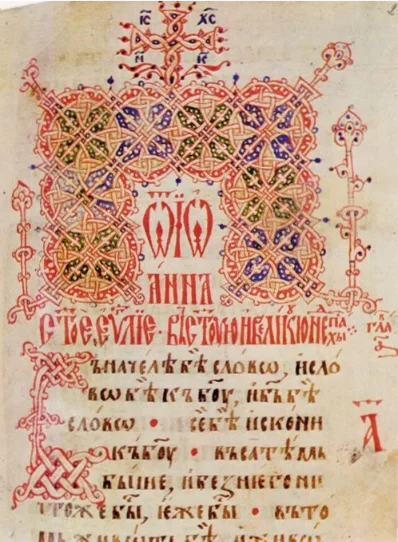 ІС ХС
ѾІѠ
АННА
С҃ТОЕ, ЕѴ҃ЛІЕ · В҃ЬС҃ТꙊЮ И ВЕЛИКꙊЮ НЕ
ГЛА
Въначелѣ бѣ словѡ, и сло
вѡ бѣ къ б҃оу, и б҃ь бѣ
словѡ • се бѣ искони
къ б҃оу • въсѣ тѣмь
быше, и без него ни
чтоже бы, еже бы • въ то
А҃